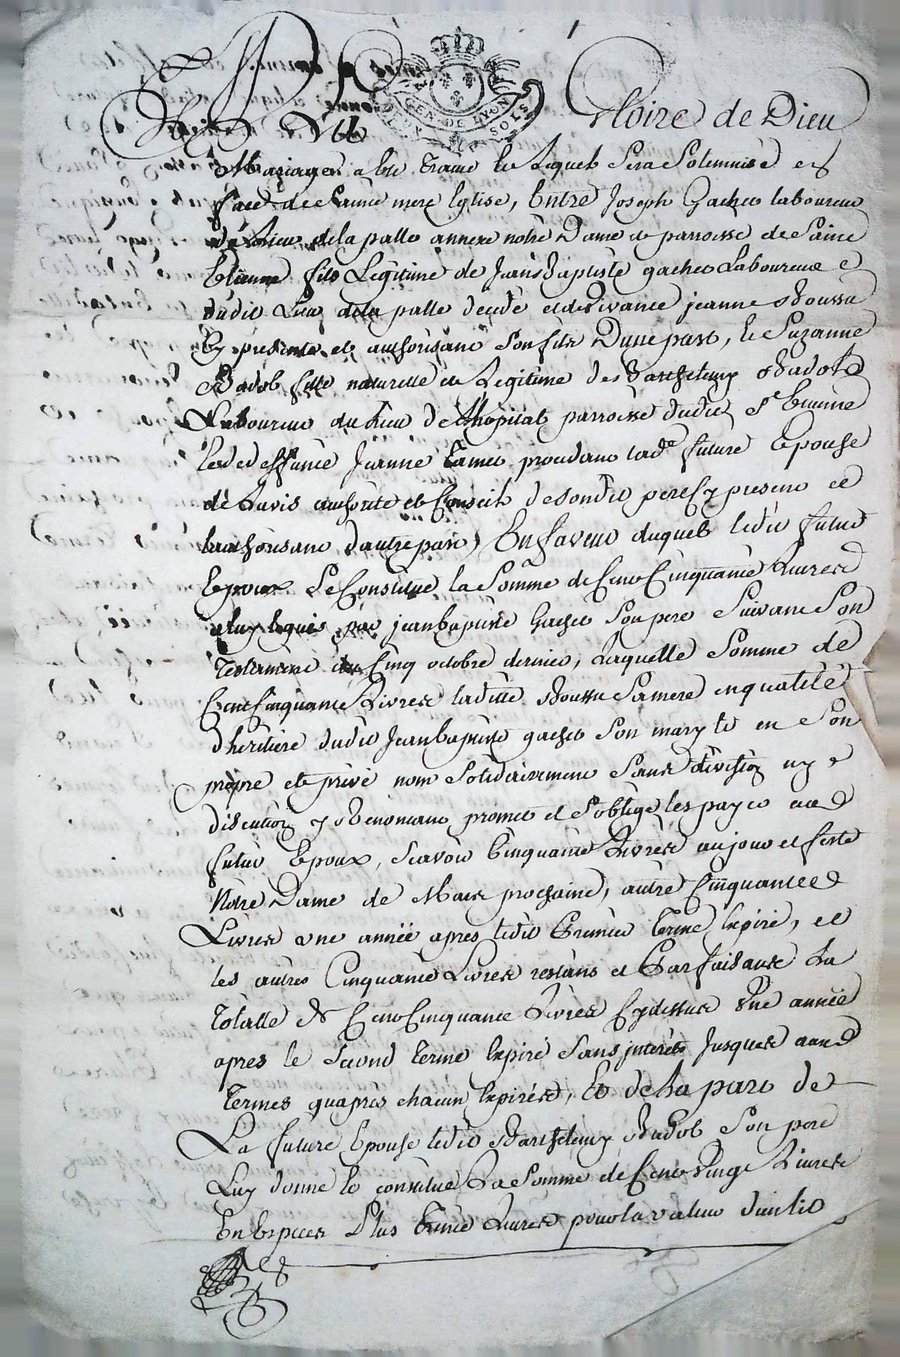 GEN DE LYON
SOLS
Gloire de Dieu
Mariage a été traité lequel sera solemnisé en
face de Sainte mere Eglise, Entre Joseph Gachet laboureur
du lieu de la palle annexe notre Dame de parroisse de Saint
Etienne fils Legitime de Jean Baptiste gachet Laboureur
dudit Lieu de la palle decedé et de vivante jeanne
Cy presente et authorisant son fils D'une part, Et Suzanne
Badol fille naturelle et Legitime de Barthelemy Badol
Laboureur du Lieu de L'hopital parroisse dudit St Etienne
et de deffunte Jeanne procedant lade future Epouse
de L'avis authorité et Conseil de sondit pere Cy present et
Lauthorisant d'autre part, En faveur duquel ledit futur
Epoux Se Constitue la Somme de Cent Cinquante Livres
a luy leguée par jean baptiste Gachet Son pere Suivant Son
Testament du Cinq octobre dernier, Laquelle Somme de
Cent Cinquante Livres ladite Sa mere en qualité
d'héritiere dudit Jean baptiste gachet Son mary et en Son
propre et privé nom Solidairement Sans division ny
discution y Renoncant promet et S'oblige les payer aud
futur Epoux, Scavoir Cinquante Livres au jour et feste
Notre Dame de Mars prochaine, autre Cinquante
Livres une année apres ledit Premier Terme Expiré, et
les autres Cinquante Livres restans et Parfaisans La
Totalle de Cent Cinquante Livres Cy dessus Une année
apres le Second Terme Expiré Sans interets Jusques aud
Termes qu'apres chacun Expirés, Et de La part de
La future Epouse ledit Barthelemy Badol Son pere
Luy donne et constitue La Somme de Cent Vingt Livres
En Especes Plus trente Livres pour la valeur d'un lit